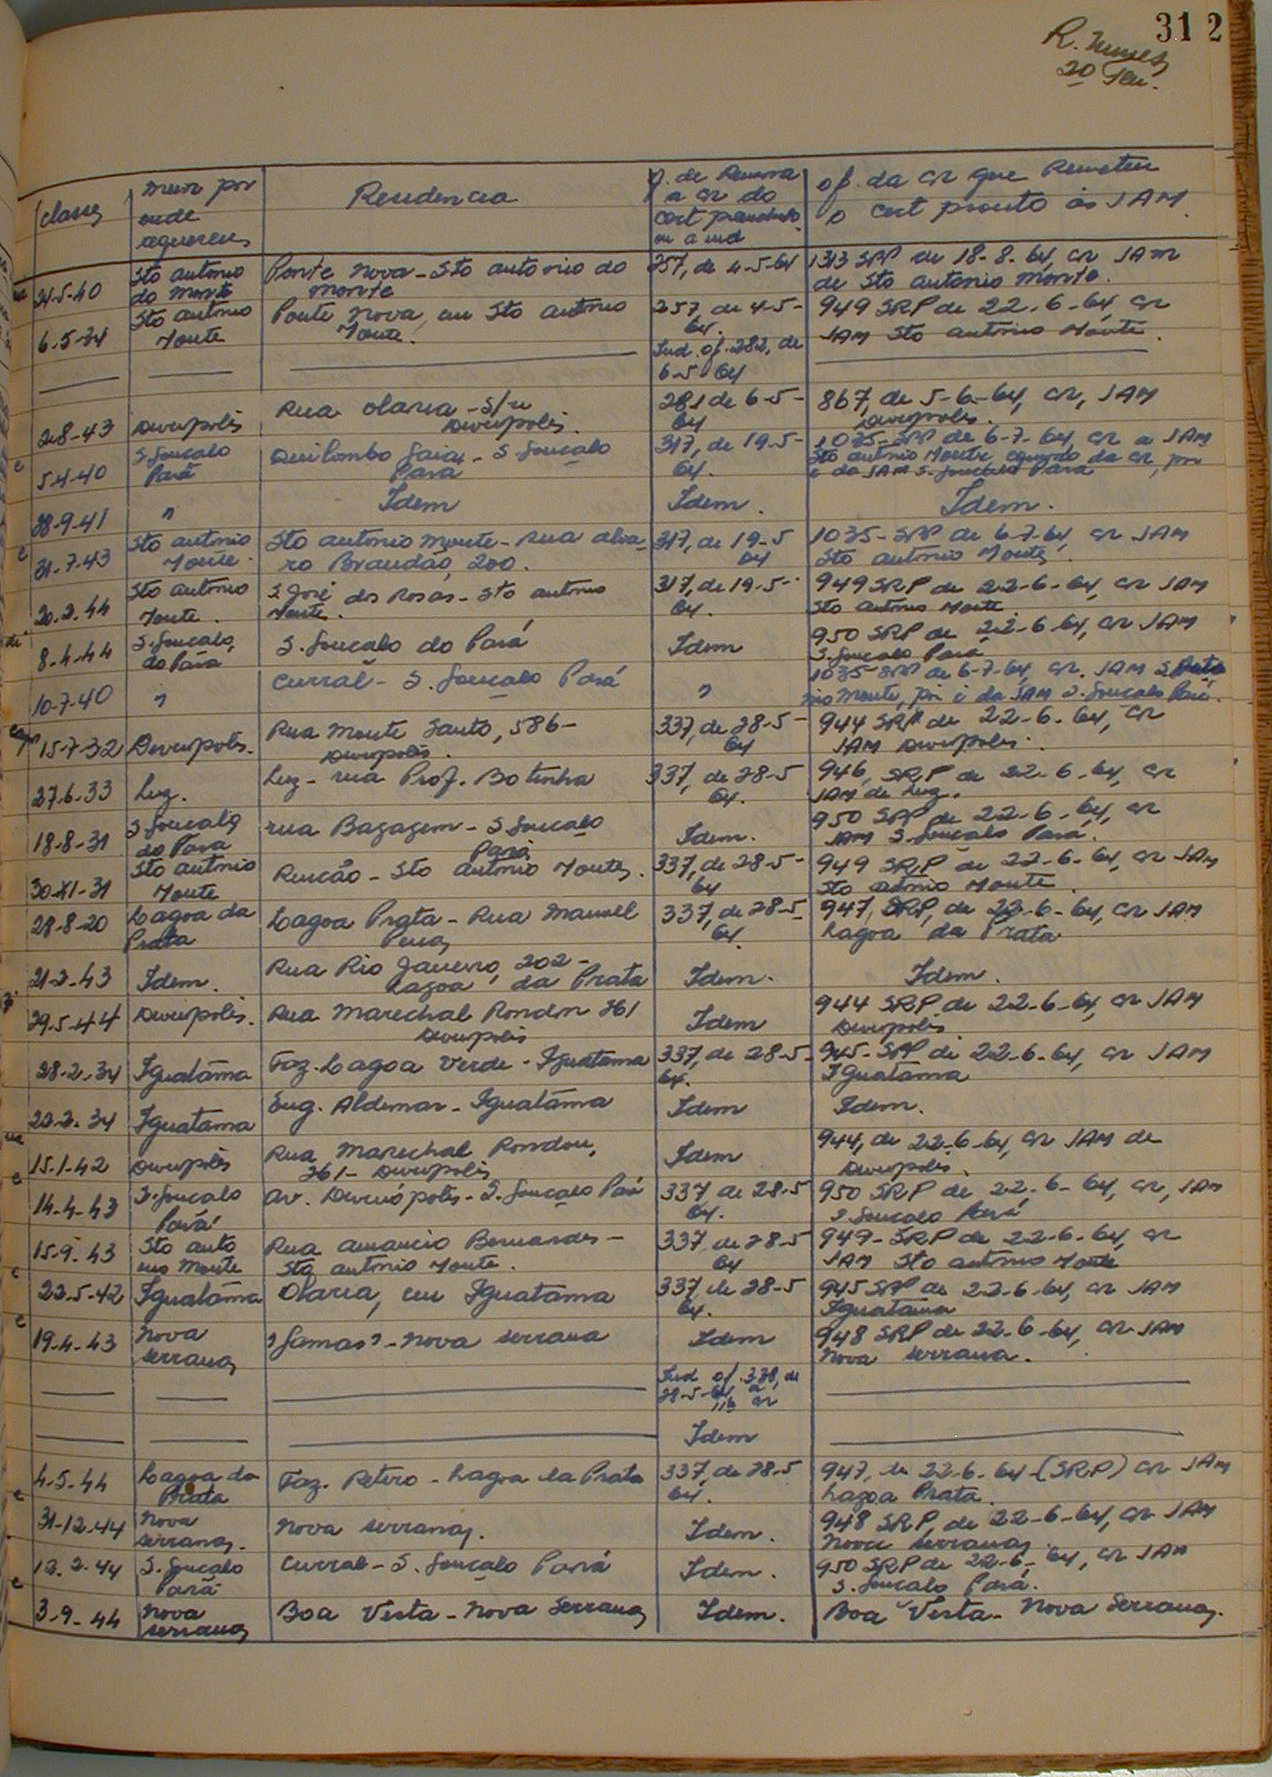 31 2
R. Nunes
20 Ten.
classe | mun por onde requereu | Residencia | of. de Remessa a cr do cert | of. da cr que Remeteu o cert pronto às JAM
24-5-40 | Sto antonio do monte | Ponte nova - Sto antonio do monte | 257, de 4-5-64 | 1313 SRP de 18-8-64, cr JAM de Sto antonio monte.
6-5-34 | Sto antonio Monte | Ponte nova, em Sto antonio Monte. | 257, de 4-5-64. | 949 SRP de 22-6-64, cr JAM Sto antonio Monte.
Ind. of. 282, de 6-5-64
28-43 | Divinópolis | Rua olaria - S/n Divinopolis. | 281 de 6-5-64 | 867, de 5-6-64, cr, JAM Divinopolis.
5-4-40 | S Gonçalo Pará | Quilombo Gaia - S Gonçalo Pará | 317, de 19-5-64. | 1035-SRP de 6-7-64, cr a JAM Sto antonio Monte da cr, por é da JAM S. Gonçalo Pará
28-9-41 | " | Idem | Idem. | Idem.
31-7-43 | Sto antonio Monte. | Sto antonio monte - rua alvaro Brandão, 200. | 317, de 19-5-64 | 1035-SRP de 6-7-64, cr JAM Sto antonio Monte
20.2.44 | Sto antonio Monte. | S José dos Rosas - Sto antonio Monte. | 317, de 19-5-64. | 949 SRP de 22-6-64, cr JAM Sto antonio Monte
8-4-44 | S. Gonçalo do Pará | S. Gonçalo do Pará | Idem | 950 SRP de 22-6-64, cr JAM S. Gonçalo Pará
10-7-40 | " | Curral - S. Gonçalo Pará | " | 1035-SRP de 6-7-64, cr. JAM S. antonio Monte, por é da JAM S. Gonçalo Pará.
15-7-32 | Divinopolis. | Rua Monte Santo, 586 - Divinopolis. | 337, de 28-5-64 | 944 SRP de 22-6-64, cr JAM Divinopolis.
27-6-33 | Luz. | Luz - rua Prof. Botinha | 337, de 28-5-64. | 946, SRP de 22-6-64, cr JAM de Luz.
18-8-31 | S Gonçalo do Para | rua Bagagem - S Gonçalo Pará | Idem. | 950 SRP de 22-6-64, cr JAM S. Gonçalo Pará.
30-XI-31 | Sto antonio Monte | Rincão - Sto antonio Monte. | 337, de 28-5-64 | 949 SRP de 22-6-64, cr JAM Sto antonio Monte.
28-8-20 | Lagoa da Prata | Lagoa Prata - Rua Manoel | 337, de 28-5-64. | 947, SRP, de 22-6-64, cr JAM Lagoa da Prata
21-2-43 | Idem. | Rua Rio Janeiro, 202 - Lagoa da Prata | Idem. | Idem.
29-5-44 | Divinopolis. | Rua Marechal Rondon 261 Divinopolis | Idem | 944 SRP de 22-6-64, cr JAM Divinopolis
28-2-34 | Iguatama | Faz. Lagoa Verde - Iguatama | 337, de 28-5-64. | 945-SRP de 22-6-64, cr JAM Iguatama
22-2-34 | Iguatama | Eng. Aldemar - Iguatama | Idem | Idem.
15-1-42 | Divinopolis | Rua Marechal Rondon, 261 - Divinopolis | Idem | 944, de 22-6-64, cr JAM de Divinopolis.
14-4-43 | S. Gonçalo Pará | av. Divinópolis - S. Gonçalo Pará | 337, de 28-5-64. | 950 SRP de 22-6-64, cr, JAM S Gonçalo Pará
15-9-43 | Sto antonio Monte | Rua amancio Bernardes - Sto antonio Monte. | 337, de 28-5-64 | 949-SRP de 22-6-64, cr JAM Sto antonio Monte
22-5-42 | Iguatama | Olaria, em Iguatama | 337, de 28-5-64. | 945 SRP de 22-6-64, cr JAM Iguatama
19-4-43 | Nova serrana | "Gamas" - nova serrana | Idem | 948 SRP de 22-6-64, cr JAM Nova serrana.
Ind of. 338, de 28-5-64, a 11ª cr
Idem
4-5-44 | Lagoa da Prata | Faz. Retiro - Lagoa da Prata | 337, de 28-5-64. | 947, de 22-6-64 - (SRP) cr JAM Lagoa Prata.
31-12-44 | Nova serrana. | Nova serrana. | Idem. | 948 SRP, de 22-6-64, cr JAM Nova serrana
12-2-44 | S. Gonçalo Pará | Curral - S. Gonçalo Pará | Idem. | 950 SRP de 22-6-64, cr JAM S. Gonçalo Pará.
3-9-44 | Nova serrana | Boa Vista - Nova Serrana | Idem. | Boa Vista - Nova Serrana.